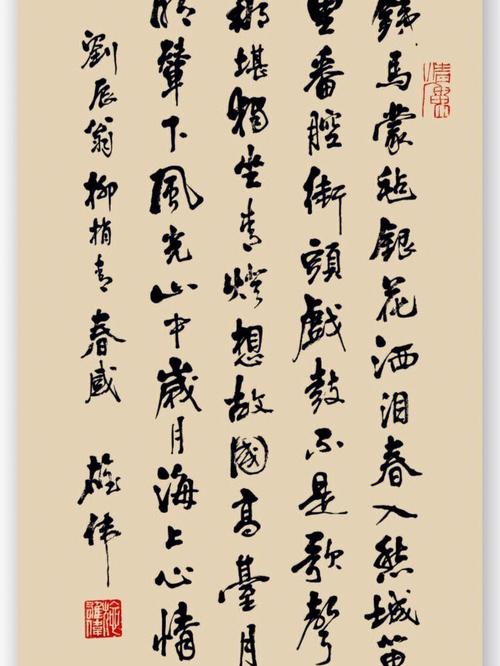 鐵馬蒙毡銀花洒泪春入愁城笛
里番腔街頭戲鼓不是歌聲
那堪獨坐青燈想故國高臺月
明輦下風光山中歲月海上心情
劉辰翁柳梢青春感 雄伟